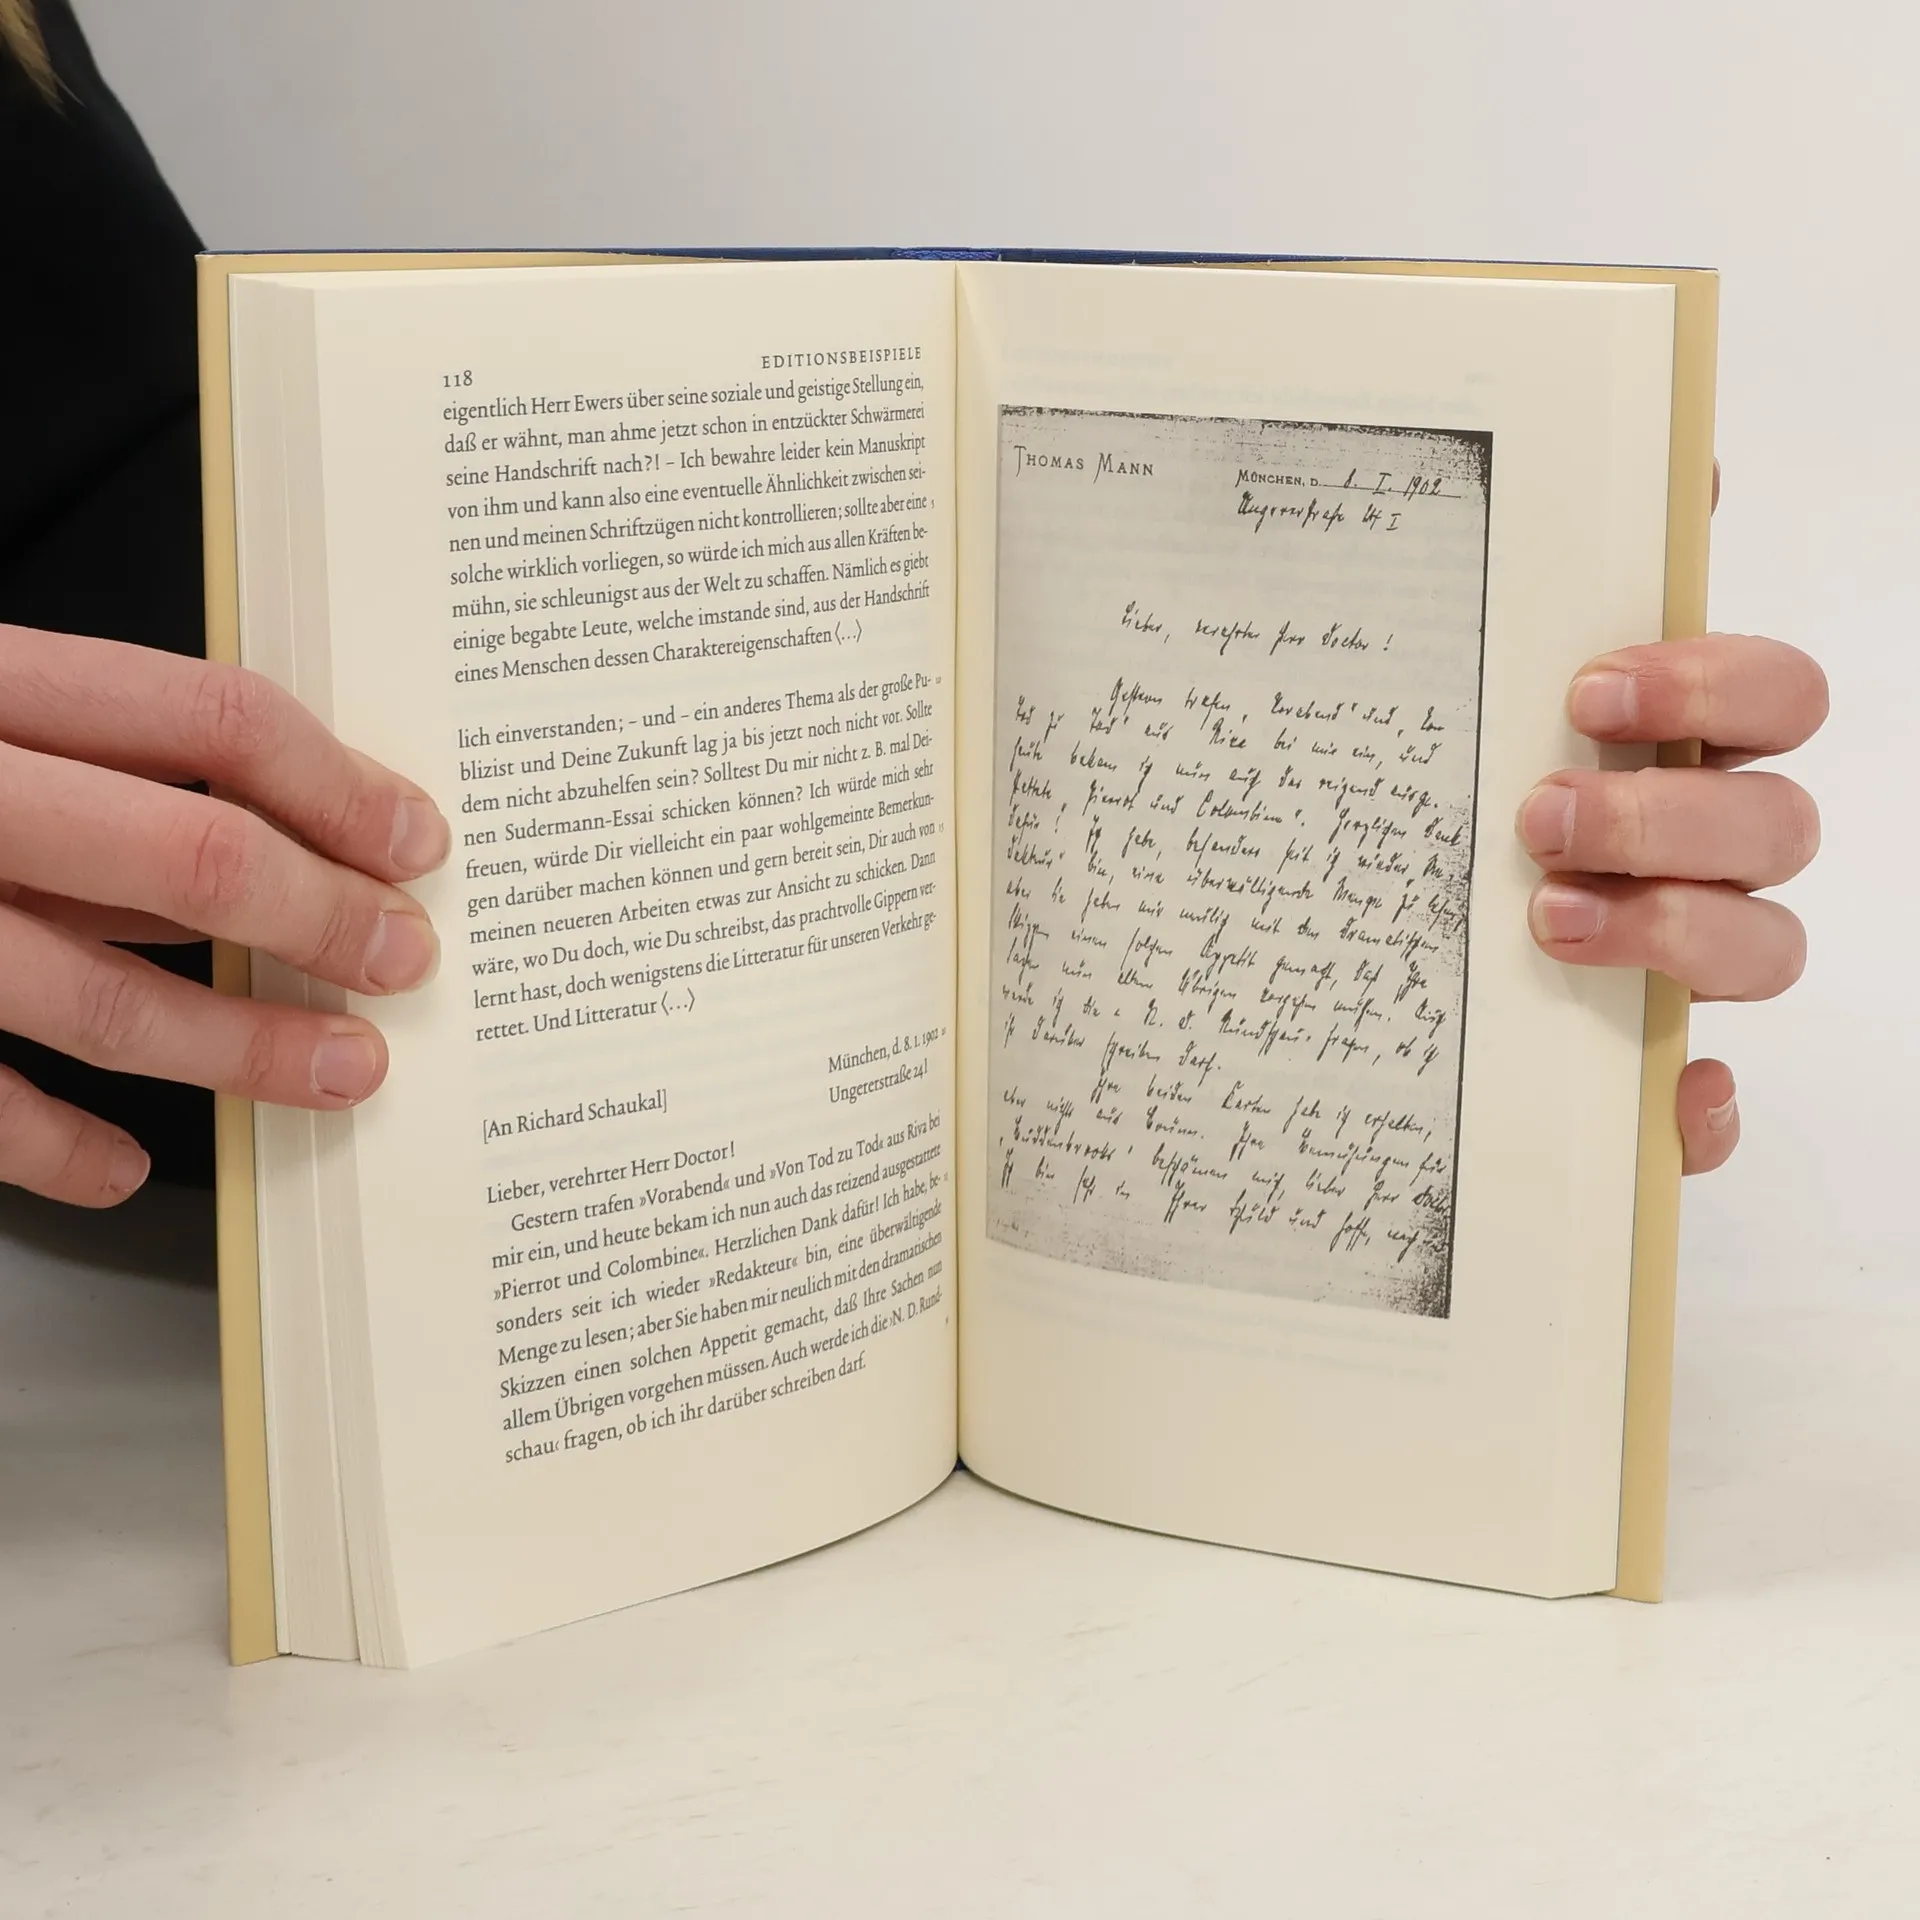 118
EDITIONSBEISPIELE
eigentlich Herr Ewers über seine soziale und geistige Stellung ein,
daß er wähnt, man ahme jetzt schon in entzückter Schwärmerei
seine Handschrift nach?! – Ich bewahre leider kein Manuskript
von ihm und kann also eine eventuelle Ähnlichkeit zwischen sei-
nen und meinen Schriftzügen nicht kontrollieren; sollte aber eine 5
solche wirklich vorliegen, so würde ich mich aus allen Kräften be-
mühn, sie schleunigst aus der Welt zu schaffen. Nämlich es giebt
einige begabte Leute, welche imstande sind, aus der Handschrift
eines Menschen dessen Charaktereigenschaften ⟨...⟩
lich einverstanden; – und – ein anderes Thema als der große Pu- 10
blizist und Deine Zukunft lag ja bis jetzt noch nicht vor. Sollte
dem nicht abzuhelfen sein? Solltest Du mir nicht z. B. mal Dei-
nen Sudermann-Essai schicken können? Ich würde mich sehr
freuen, würde Dir vielleicht ein paar wohlgemeinte Bemerkun-
gen darüber machen können und gern bereit sein, Dir auch von 15
meinen neueren Arbeiten etwas zur Ansicht zu schicken. Dann
wäre, wo Du doch, wie Du schreibst, das prachtvolle Gippern ver-
lernt hast, doch wenigstens die Litteratur für unseren Verkehr ge-
rettet. Und Litteratur ⟨...⟩
München, d. 8. 1. 1902 20
Ungererstraße 24I
[An Richard Schaukal]
Lieber, verehrter Herr Doctor!
Gestern trafen »Vorabend« und »Von Tod zu Tod« aus Riva bei
mir ein, und heute bekam ich nun auch das reizend ausgestattete
»Pierrot und Colombine«. Herzlichen Dank dafür! Ich habe, be-
sonders seit ich wieder »Redakteur« bin, eine überwältigende
Menge zu lesen; aber Sie haben mir neulich mit den dramatischen
Skizzen einen solchen Appetit gemacht, daß Ihre Sachen nun
allem Übrigen vorgehen müssen. Auch werde ich die ›N. D. Rund-
schau‹ fragen, ob ich ihr darüber schreiben darf.
THOMAS MANN
MÜNCHEN, D. 8. I. 1902
Ungererstraße 24 I
Lieber, verehrter Herr Doctor!
Gestern trafen „Vorabend" und „Von
Tod zu Tod" aus Riva bei mir ein, und
heute bekam ich nun auch das reizend ausge-
stattete „Pierrot und Colombine". Herzlichen Dank
dafür! Ich habe, besonders seit ich wieder „Re-
dakteur" bin, eine überwältigende Menge zu lesen;
aber Sie haben mir neulich mit den dramatischen
Skizzen einen solchen Appetit gemacht, daß Ihre
Sachen nun allem Übrigen vorgehen müssen. Auch
werde ich die „N. D. Rundschau" fragen, ob ich
ihr darüber schreiben darf.
Ihre beiden Karten hab ich erhalten,
aber nichts aus Brünn. Ihre Bemühungen für
„Buddenbrooks" beschämen mich, lieber Herr Doctor
Ich bin sehr in Ihrer Schuld und hoffe, mich